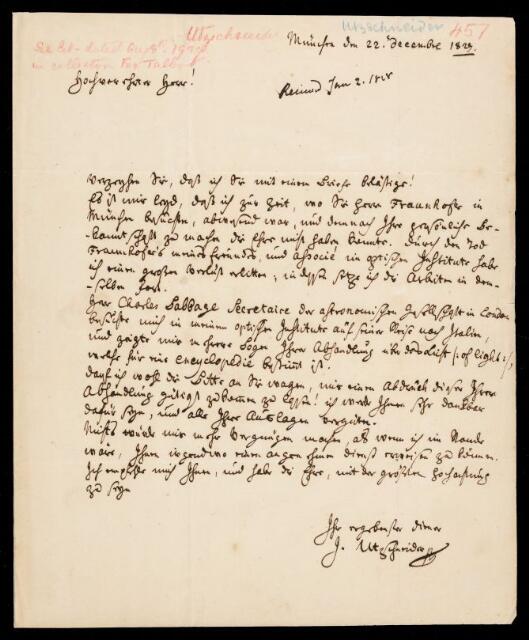 Utzschneider
Utzschneider 457
München den 22. Decembre 1827.
Hochverehrter Herr!
Received Jan 2. 1828
Verzeyhen Sie, daß ich Sie mit einem Briefe belästige!
Es ist mir leyd, daß ich zur Zeit, wo Sie Herrn Fraunhofer in
München besuchten, abwesend war, und demnach Ihre persönliche Be-
kanntschaft zu machen die Ehre nicht haben konnte. Durch den Tod
Fraunhofer's meines Freundes, und Associé im optischen Institute habe
ich einen großen Verlust erlitten; indessen setze ich die Arbeiten in dem-
selben fort.
Herr Charles Babbage Secretaire der astronomischen Gesellschaft in London
besuchte mich in meinem optischen Institute auf seiner Reise nach Italien,
und zeigte mir mehrere Bogen Ihrer Abhandlung über das Licht /: of light :/,
welche für eine encyclopedie bestimmt ist.
Darf ich wohl die Bitte an Sie wagen, mir einen Abdruck dieser Ihrer
Abhandlung gütigst zukommen zu lassen! ich werde Ihnen sehr dankbar
dafür seyn, und alle Ihre Auslagen vergüten.
Nichts würde mir mehr Vergnügen machen, als wenn ich im Stande
wäre, Ihnen irgendwo einen angenehmen Dienst erweisen zu können.
Ich empfehle mich Ihnen, und habe die Ehre, mit der größten Hochachtung
zu seyn
Ihr ergebenster Diener
J. Utzschneider